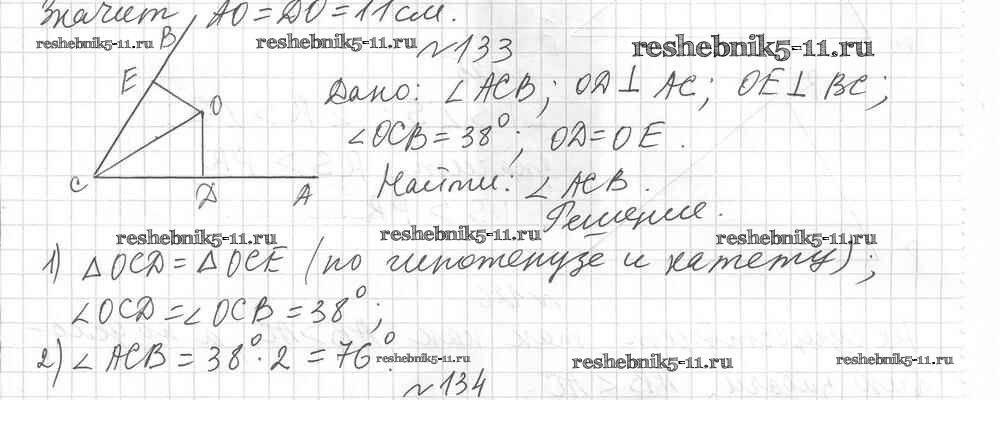 Значит, AO = DO = 11 см.
reshebnik5-11.ru reshebnik5-11.ru reshebnik5-11.ru
B
№133
E O
Дано: ∠ACB; OD⊥AC; OE⊥BC;
∠OCB = 38°; OD = OE.
C D A
Найти: ∠ACB.
Решение.
reshebnik5-11.ru reshebnik5-11.ru reshebnik5-11.ru
1) △OCD = △OCE (по гипотенузе и катету);
∠OCD = ∠OCB = 38°;
2) ∠ACB = 38°·2 = 76°.
reshebnik5-11.ru reshebnik5-11.ru reshebnik5-11.ru
№134